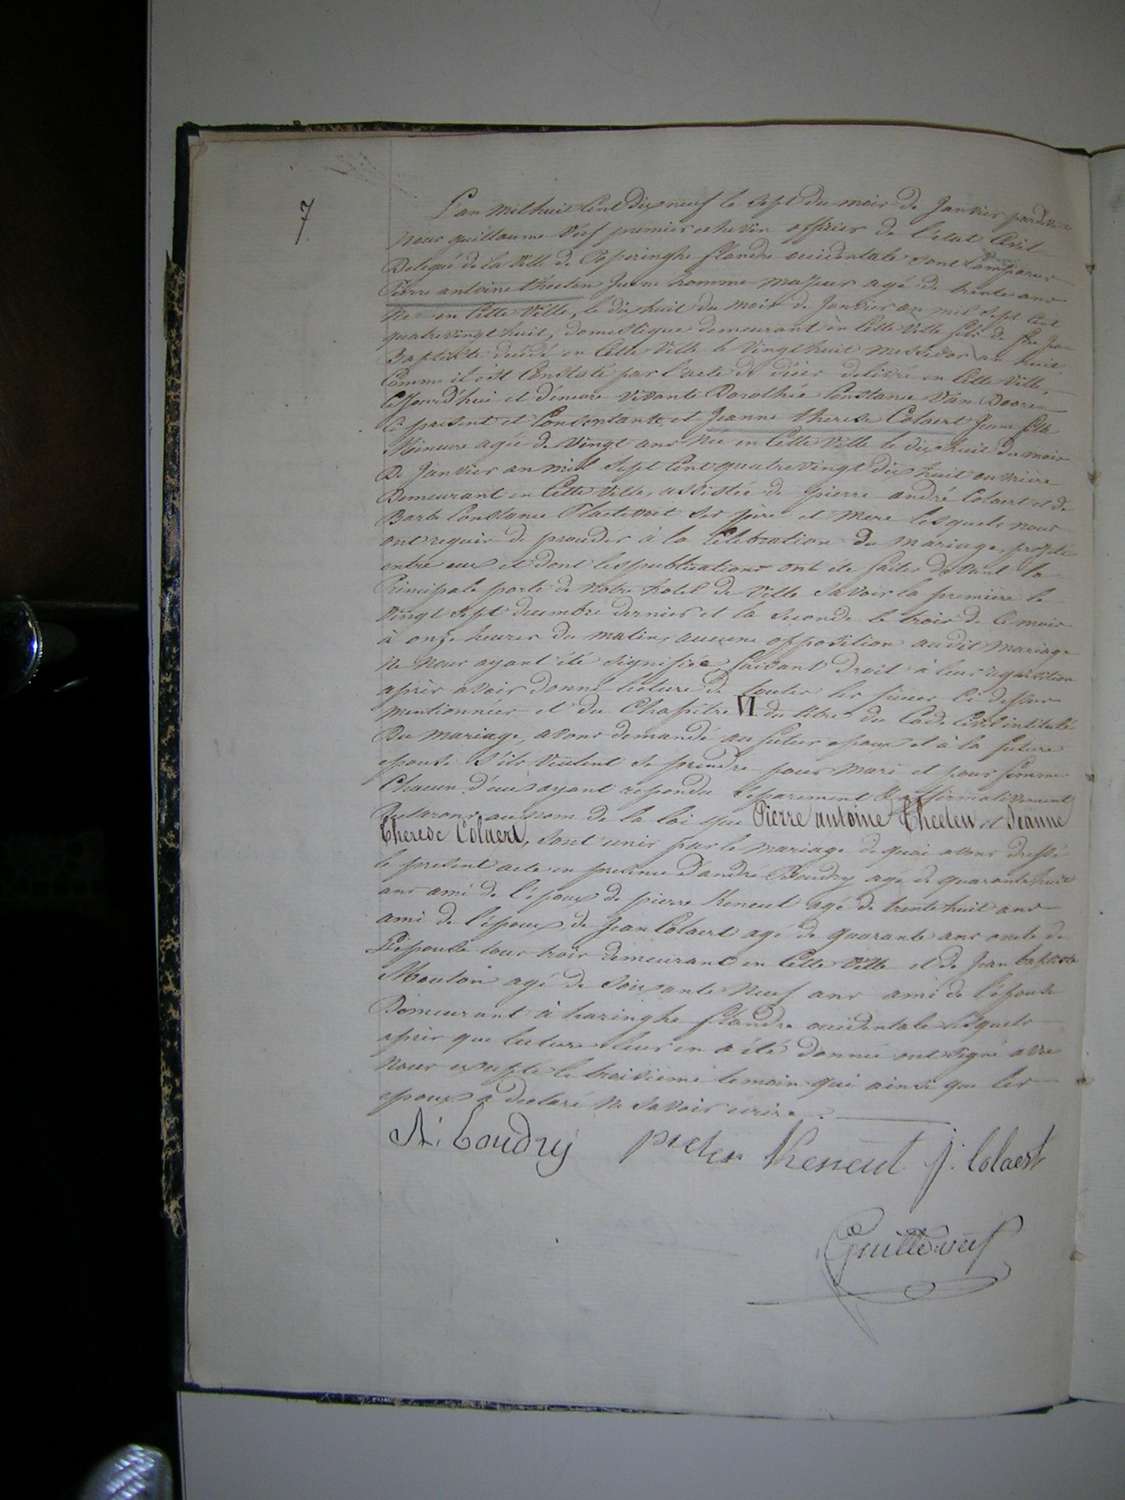 7
L'an mil huit Cent dix neuf le Sept du mois de Janvier pardevant
nous guillaume Veef premier echevin officier de l'etat Civil
Delegué de la Ville de Poperinghe flandre occidentale sont Comparus
Pierre antoine Theeten Jeune homme majeur agé de trente ans
Né en Cette Ville, le dix huit du mois de Janvier an mil Sept Cent
quatre vingt huit, domestique demeurant en Cette Ville fils de feu Jean
Baptiste decédé en Cette Ville le Vingt huit messidor an huit
Comme il est Constaté par l'acte de décès delivré en Cette Ville,
Cejourd'hui et d'encore vivante Dorothée Constance Van Dooren
Ci present et Consentante, et Jeanne therese Colaert Jeune fille
Mineure agée de Vingt ans Née en Cette Ville le dix huit du mois
De Janvier an mil Sept Cent quatre vingt dix huit ouvriere
Demeurant en Cette Ville, assistée de pierre andré Colaert et de
Barbe Constance Ses père et Mere lesquels nous
ont requis de proceder à la Célébration du mariage projeté
entre eux et dont les publications ont été faites devant la
Principale porte de Notre hotel de Ville Savoir la premiere le
Vingt Sept decembre dernier et la Seconde le trois de Ce mois
à onze heures du matin, aucune opposition audit mariage
Ne Nous ayant été signifiée faisant droit à leur requisition
après avoir donné lecture de toutes les pieces Ci dessus
mentionnées et du Chapitre VI du titre du Code Civil intitulé
Du mariage, avons demandé au futur epoux et à la future
epouse S'ils veulent Se prendre pour mari et pour femme
Chacun d'eux ayant repondu Separement & affirmativement
Declarons au nom de la loi que Pierre antoine Theeten et Jeanne
Therese Colaert, Sont unis par le mariage de quoi avons dressé
le present acte en presence D'andré Boudry agé de quarante huit
ans ami de l'époux de pierre Keneut agé de trente huit ans
ami de l'époux de Jean Colaert agé de quarante ans oncle de
L'épouse tous trois demeurant en Cette Ville et de Jean baptiste
Mouton agé de Soixante Neuf ans ami de l'épouse
Demeurant à haringhe flandre occidentale lesquels
après que lecture leur en a été donnée ont signé avec
Nous excepté le troisieme temoin qui ainsi que les
epoux a declaré Ne Savoir ecrire.
A: boudry pieter Keneut J: Colaert
Guille veef